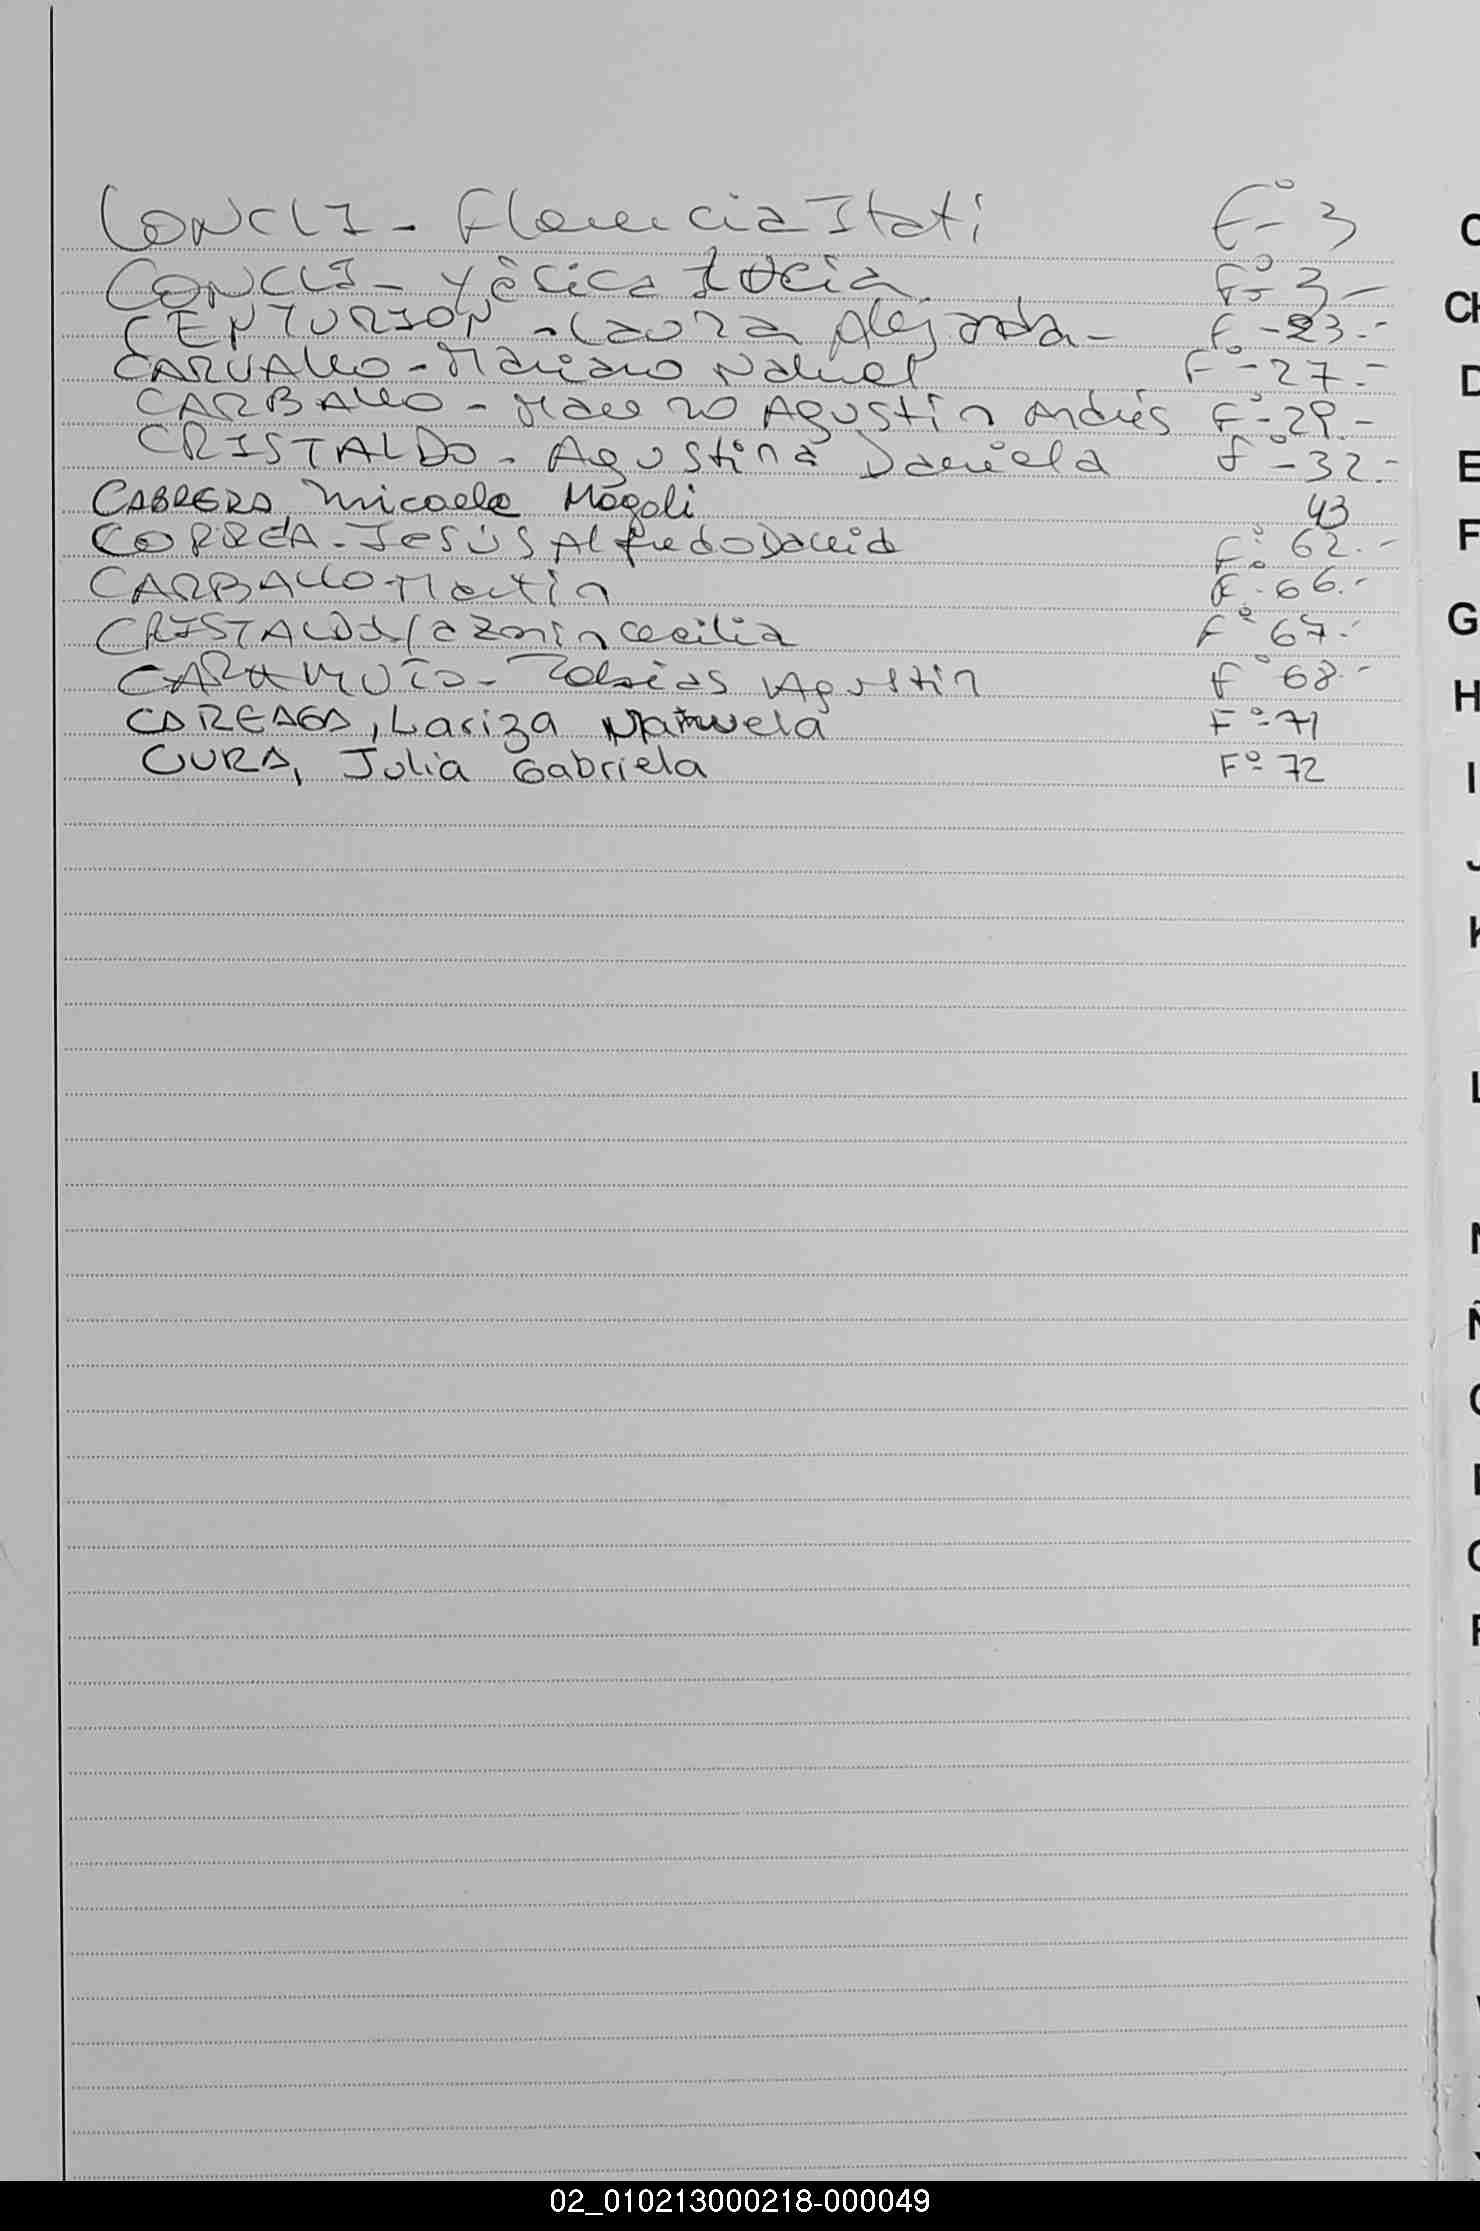 CONCLI - Florencia Itati Fº- 3
CONCLI - Yésica Lucía Fº- 3 -
CENTURION - Laura Alejandra - Fº - 23.-
CARVALLO - Mariano Nahuel Fº - 27.-
CARBALLO - Mauro Agustín Andrés Fº- 29.-
CRISTALDO - Agustina Daniela Fº - 32.-
CABRERA, Micaela Magali 43
CORREA - Jesús Alfredo David Fº 62.-
CARBALLO Martin Fº. 66.-
CRISTALDO Cecilia Fº 67.-
Tobias Agustin Fº 68.-
CAREAGA, Lariza Manuela Fº- 71
CURA, Julia Gabriela Fº- 72
C
CH
D
E
F
G
H
I
J
K
L
N
Ñ
02_010213000218-000049